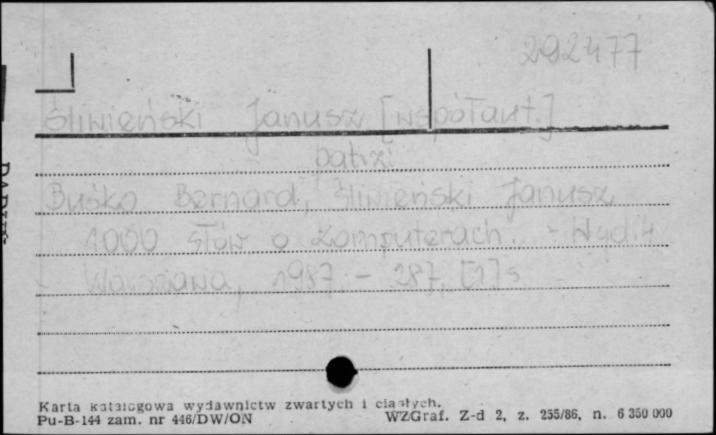 292477
Śliwieński Janusz [współaut.]
patrz:
Buśko Bernard, Śliwieński Janusz
1000 słów o komputerach. - Wyd. 4
Warszawa, 1987. - 287, [1] s.
Karta katalogowa wydawnictw zwartych i ciągłych.
Pu-B-144 zam. nr 446/DW/ON WZGraf. Z-d 2, z. 255/86, n. 6 350 000